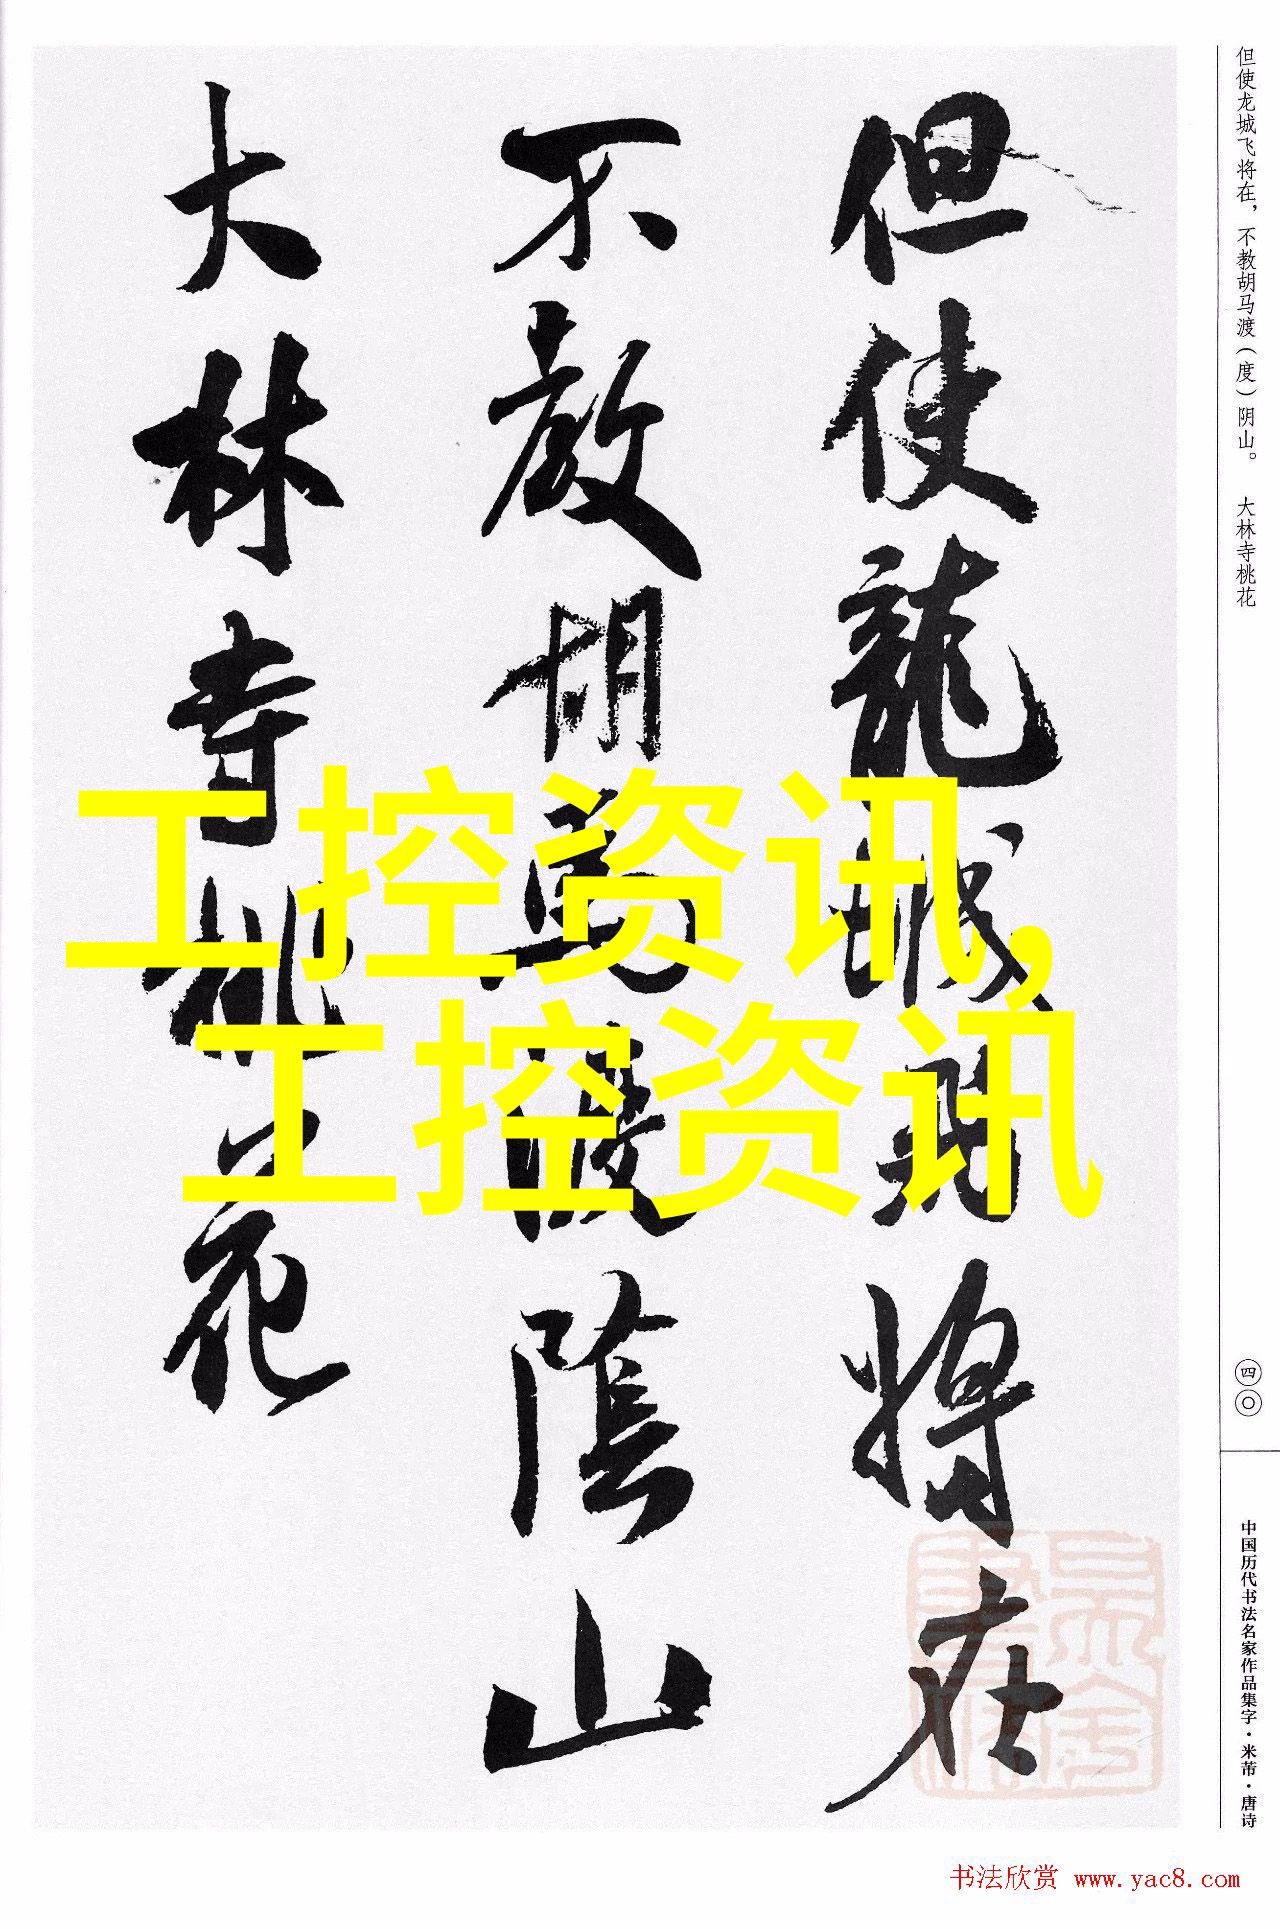 但使龍城飛將在
不教胡馬渡陰山
大林寺桃花
但使龙城飞将在，不教胡马渡（度）阴山。 大林寺桃花
四〇
中国历代书法名家作品集字·米芾·唐诗
工控资讯,
工控资讯
书法欣赏 www.yac8.com